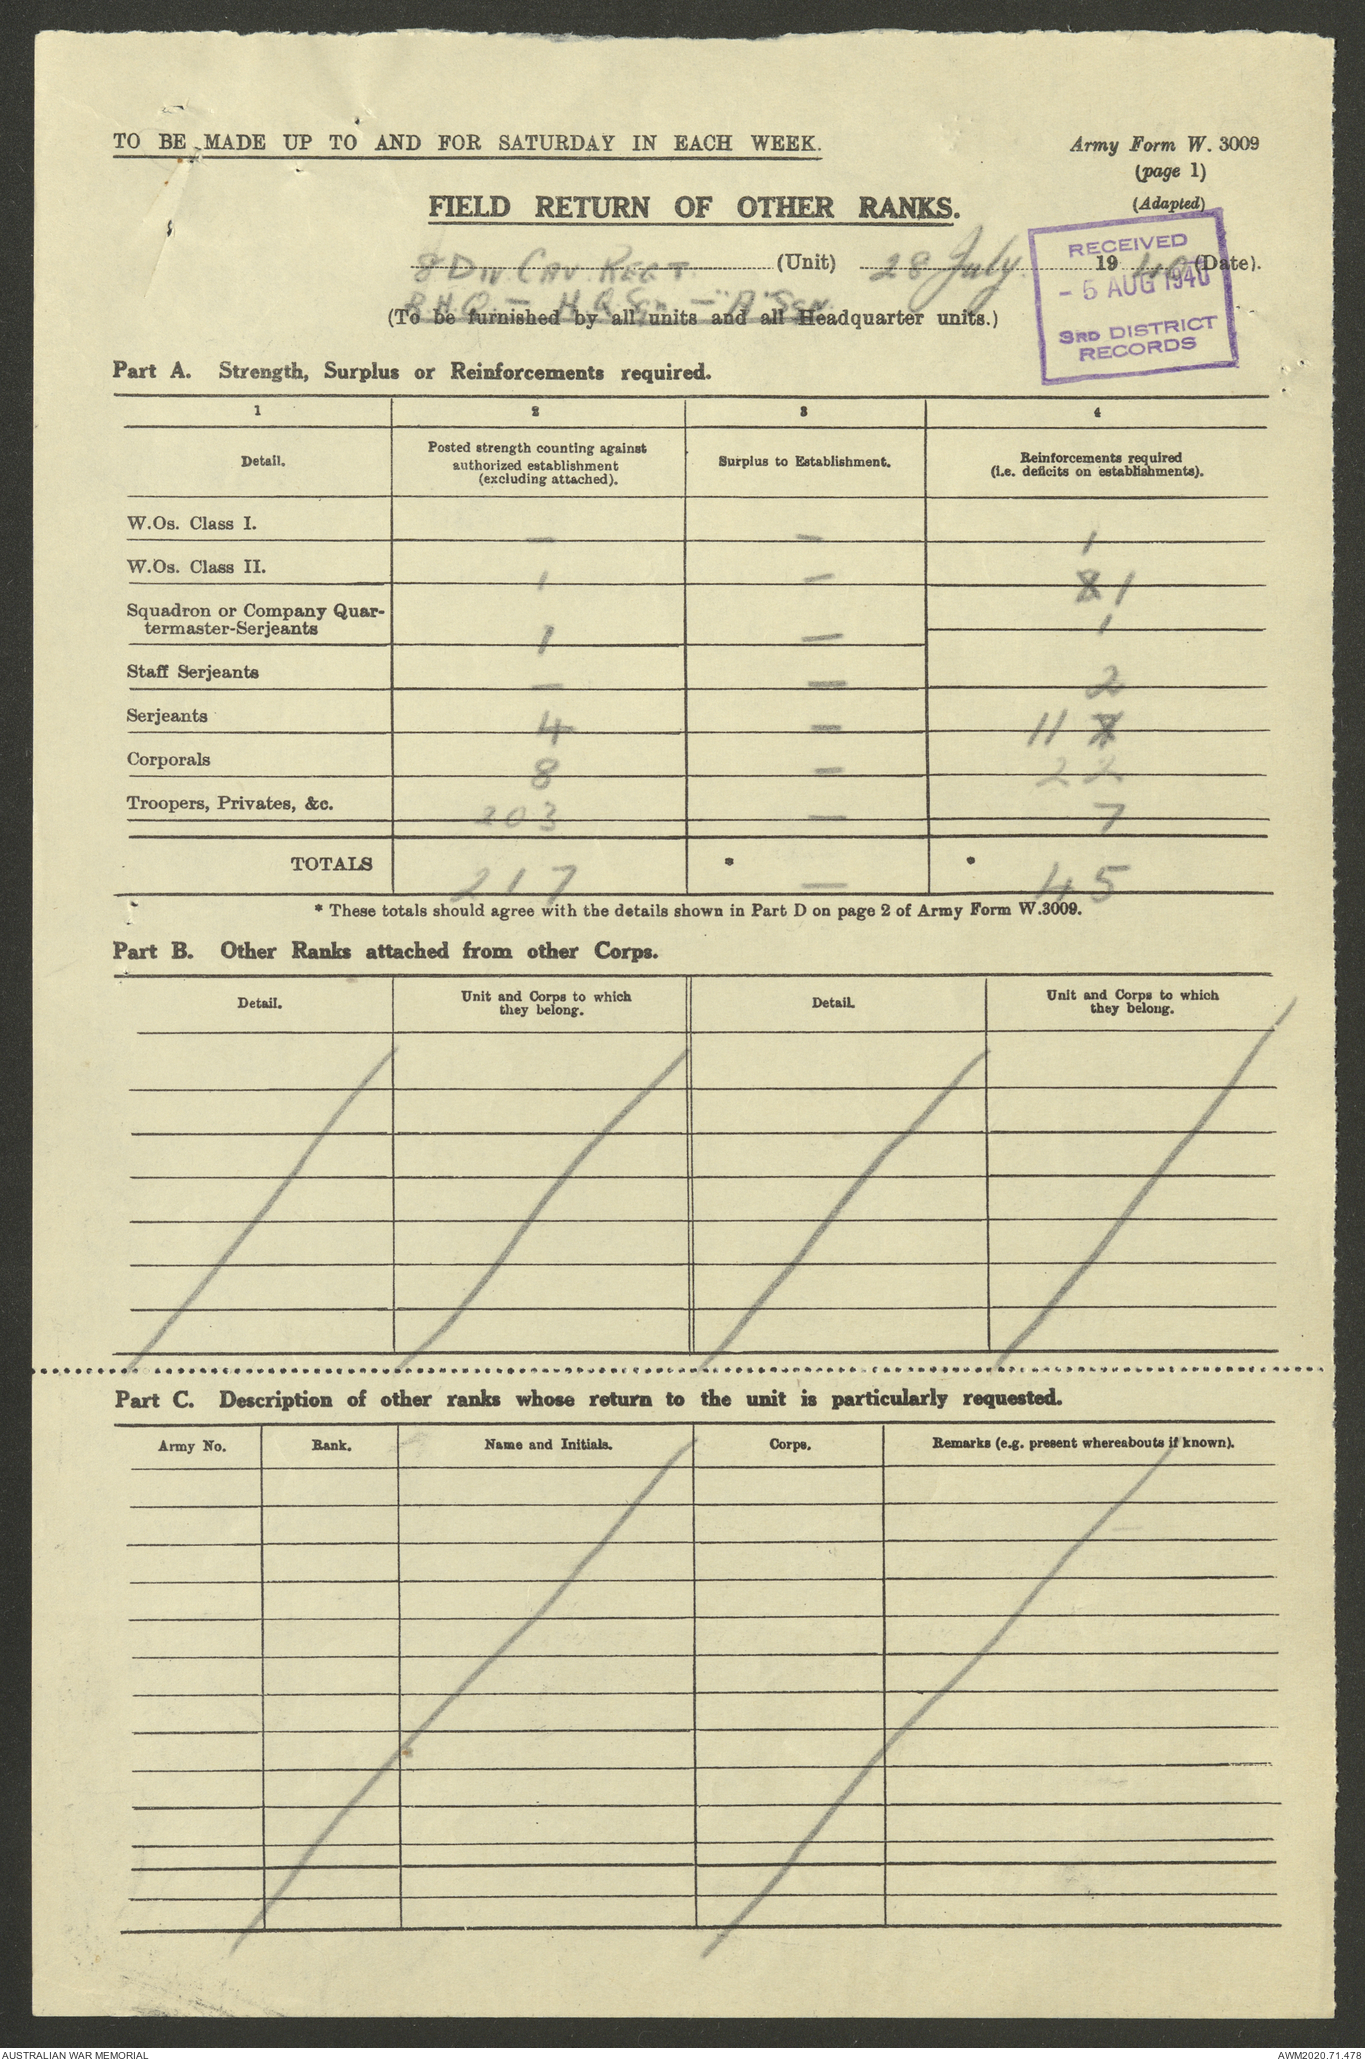 TO BE MADE UP TO AND FOR SATURDAY IN EACH WEEK.
Army Form W. 3009
(page 1)
(Adapted)
FIELD RETURN OF OTHER RANKS.
8 DIV CAV. REGT. (Unit) 28 July. 1940 (Date).
R.H.Q. - H.Q. Sqn - "A" Sqn.
(To be furnished by all units and all Headquarter units.)
RECEIVED
- 5 AUG 1940
3RD DISTRICT
RECORDS
Part A. Strength, Surplus or Reinforcements required.
1 2 3 4
Detail. Posted strength counting against authorized establishment (excluding attached). Surplus to Establishment. Reinforcements required (i.e. deficits on establishments).
W.Os. Class I. — — 1
W.Os. Class II. 1 — 1
Squadron or Company Quar-
termaster-Serjeants 1 — 1
Staff Serjeants — — 2
Serjeants 4 — 11
Corporals 8 — 22
Troopers, Privates, &c. 203 — 7
TOTALS 217 * — * 45
* These totals should agree with the details shown in Part D on page 2 of Army Form W.3009.
Part B. Other Ranks attached from other Corps.
Detail. Unit and Corps to which they belong. Detail. Unit and Corps to which they belong.
Part C. Description of other ranks whose return to the unit is particularly requested.
Army No. Rank. Name and Initials. Corps. Remarks (e.g. present whereabouts if known).
AUSTRALIAN WAR MEMORIAL
AWM2020.71.478